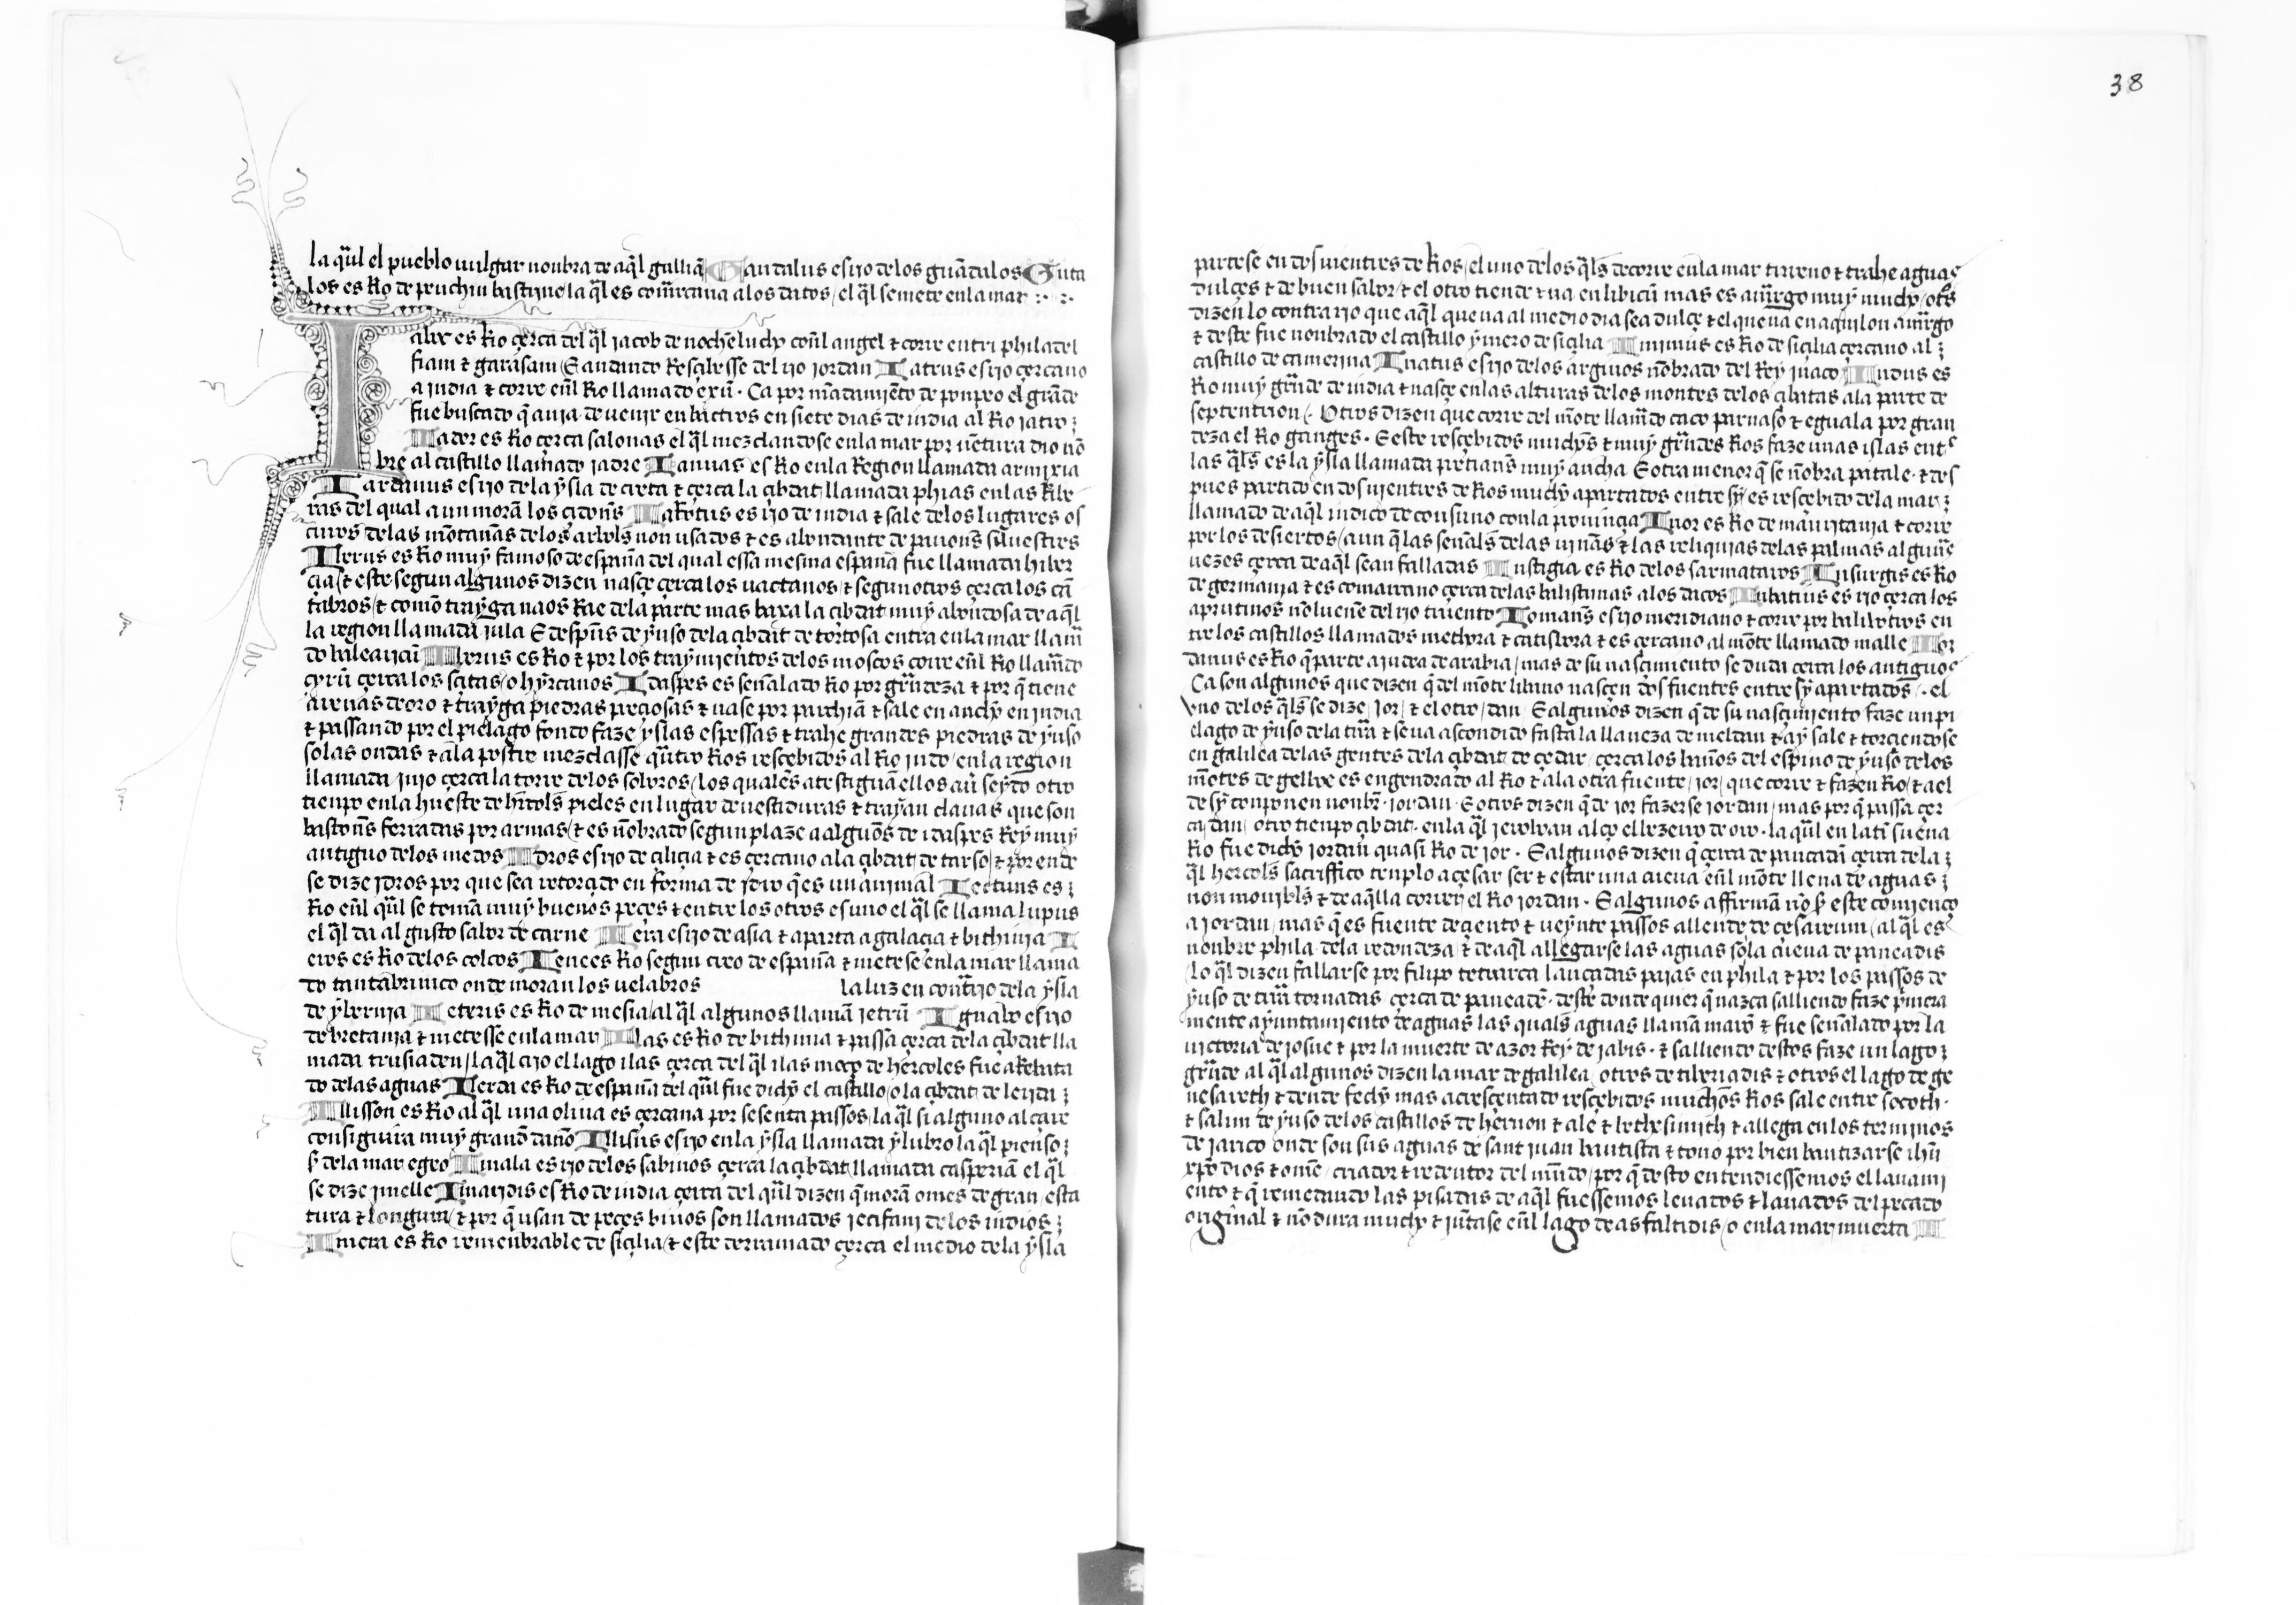 la q̃l el pueblo uulgar nonbra de aq̃l gallia Gandalus es rio delos guãdalos Guta
los es Rio de peuchiu bastrine la q̃l es comarcana alos dacos / el q̃l se mete enla mar
Iaboc es Rio çerca del q̃l jacob de noche lucho conl angel & corre entre philadel
fiam & garasam / E andando Resçibesse del rio iordan Iatrus es rio çercano
a india & corre enl Rio llamado exũ · Ca por mãdamiẽto de ponpeo el grãde
fue buscado q̃ auia de uenir en bactros en siete dias de india al Rio iatro
Iader es Rio çerca salonas el q̃l mezclandose enla mar por uẽtura dio nõ
bre al castillo llamado iadre Ianuas es Rio enla Region llamada armixia
Iardanus es rio dela ysla de creta & çerca la çibdat llamada phias enlas Ribe
ras del qual aun morã los cidonũs es rio de india & sale delos lugares os
curos delas mõtanas delos arbols non usados & es abondante de pauons siluestres
Iberus es Rio muy famoso de españa del qual essa mesma españa fue llamada hiber
cia / & este segun algunos dizen nasçe çerca los uactanos / & segun otros çerca los cã
tabros / & como trayga naos Rae dela parte mas baxa la çibdat muy abũdosa de aq̃l
la region llamada iula E despũs de yuso dela çibdat de tortosa entra enla mar llam̃
do balearicũ Iberus es Rio & por los traymientos delos moscos corre enl Rio llam̃do
cyrũ çerca los scitas / o hyrcanos Idaspes es señalado Rio por gr̃ndeza & por q̃ tiene
arenas de oro & trayga piedras preçiosas & uase por parchiã & sale en ancho en india
& passando por el pielago fondo faze yslas espessas & trahe grandes piedras de yuso
solas ondas & ala postre mezclasse q̃tro Rios resçebidos al Rio indo / enla region
llamada iuio çerca la torre delos soboros / los quales atestiguã ellos aũ seydo otro
tienpo enla hueste de hercols pieles en lugar de uestiduras & trayan clauas que son
bastones ferradas por armas / & es nõbrado segun plaze a alguños de idaspes Rey muy
antiguo delos medos Idros es rio de çiliçia & es çercano ala çibdat de tarso / & por ende
se dize jdros por que sea retorçido en forma de jdro q̃ es un animal Iectuns es
Rio enl q̃l se toman muy buenos peçes & entre los otros es uno el q̃l se llama lupus
el q̃l da al gusto sabor de carne Iera es rio de asia & aparta a galaçia & bithinia I
eros es Rio delos colcos Iences Rio segun creo de españa & mete se enla mar llama
do cantabrinico onde moran los uelabros la luz en contrario dela ysla
de ybernia Ieterus es Rio de mesia / al q̃l algunos llamã ietrũ Igualo es rio
de bretania & metesse enla mar Ilas es Rio de bithinia & passa çerca dela çibdat lla
mada trusiaden / la q̃l crio el lago ilas çerca del q̃l ilas moço de hercoles fue aRebata
do delas aguas Ilerda es Rio de españa del q̃l fue dicho el castillo / o la çibdat de lerida
Ilisson es Rio al q̃l una oliua es çercana por sesenta passos / la q̃l si alguno alçare
consiguira muy grand daño Ilisus es rio enla ysla llamada ylubro la q̃l pienso
ser dela mar egeo Imala es rio delos sabinos çerca la çibdat llamada casperiã el q̃l
se dize jmelle Imaridis es Rio de india çerca del q̃l dizen q̃ morã omes de gran / esta
tura & longura / & por q̃ usan de peçes biuos son llamados jecifani delos indios
Imera es Rio remenbrable de siçilia / & este derramado çerca el medio dela ysla
38
partese en dos uientres de Rios / el uno delos q̃ls decorre enla mar tirreno & trahe aguas
dulçes & de buen sabor / & el otro tiende & ua en libicũ mas es am̃rgo muy mucho / otrs
dizen lo contrario que aq̃l que ua al medio dia sea dulçe & el que ua en aquilon am̃rgo
& deste fue nonbrado el castillo ymero de siçilia Iminius es Rio de siçilia çercano al
castillo de camerina Inatus es rio delos arginos nõbrado del Rey inaco Indus es
Rio muy gr̃nde de india & nasçe enlas alturas delos montes delos çibitas ala parte de
septentrion / · Otros dizen que corre del mõte llam̃do caco parnaso & eguala por gran
deza el Rio ganges · E este resçebidos muchos & muy gr̃ndes Rios faze unas islas entre
las q̃ls es la ysla llamada pretians muy ancha E otra menor q̃ se nõbra patale · & des
pues partido en dos uientres de Rios mucho apartados entre sy / es resçebido dela mar
llamado de aq̃l indico de consuno conla prouinçia Inor es Rio de mauritania & corre
por los desiertos / aun q̃ las señals delas uinas & las reliquias delas palmas algune
uezes çerca de aq̃l sean falladas Instigia es Rio delos sarmataros Insurgis es Rio
de germania & es comarcano çerca delas balistimas alos dacos Iubatius es rio çerca los
aprutinos nõ luene del rio truento Iomans es rio meridiano & corre por balibotros en
tre los castillos llamados methora & catisbora & es çercano al mõte llamado malle Ior
danus es Rio q̃ parte a iudea de arabia / mas de su nasçimiento se duda çerca los antiguos
Ca son algunos que dizen q̃ del mõte libano nasçen dos fuentes entre sy apartados / · el
vno delos q̃ls se dize / jor / & el otro / dan / E algunos dizen q̃ de su nasçimiento faze un pi
elago de yuso dela tr̃ra & se ua ascondido fasta la llaneza de meldan & ay sale & torciendose
en galilea delas gentes dela çibdat de çedar / çerca los baños del espino de yuso delos
mõtes de gelboe es engendrado al Rio & ala otra fuente / jor / que corre & fazen Rio / & a el
de sy conponen nonbr̃ · iordan · E otros dizen q̃ de jor fazerse iordan / mas por q̃ passa çer
ca dan / otro tienpo çibdat · enla q̃l jeroboan alço el bezerro de oro · la q̃l en latĩ suena
Rio fue dicho iordan quasi Rio de jor · E algunos dizen q̃ çerca de paucadã çerca dela
q̃l hercols sacriffico tenplo a çesar ser & estar una cueua enl mõte llena de aguas
non mouibls & de aq̃lla correr el Rio iordan · E algunos affirman nõ ser este comienço
a jordan / mas q̃ es fuente de çento & ueynte passos allende de cesaream / al q̃l es
nonbre phila dela redondeza / & de aq̃l allegarse las aguas sola cueua de paneadis
lo q̃l dizen fallarse por filipo tetrarca lançadas pajas en phila & por los passos de
yuso de tr̃ra tornadas çerca de paneade · deste donde quier q̃ nazca salliendo faze primera
mente ayuntamiento de aguas las quals aguas llaman marõ & fue señalado por la
uictoria de josue & por la muerte de azor Rey de jabis · & salliendo destos faze un lago
gr̃nde al q̃l algunos dizen la mar de galilea / otros de tiberiadis & otros el lago de ge
nesareth & dende fecho mas acresçentado resçebidos muchos Rios sale entre socoth ·
& salim de yuso delos castillos de hernon & ale & bethesimith & allega enlos terminos
de jarico onde son sus aguas de sant juan bautista & touo por bien bautizarse ihũ
xpõ dios & ome / criador & redentor del mũdo / por q̃ desto entendiessemos el lauami
ento & q̃ remedando las pisadas de aq̃l fuessemos leuados & lauados del pecado
original & nõ dura mucho & jũtase enl lago de asfaltidis / o enla mar muerta